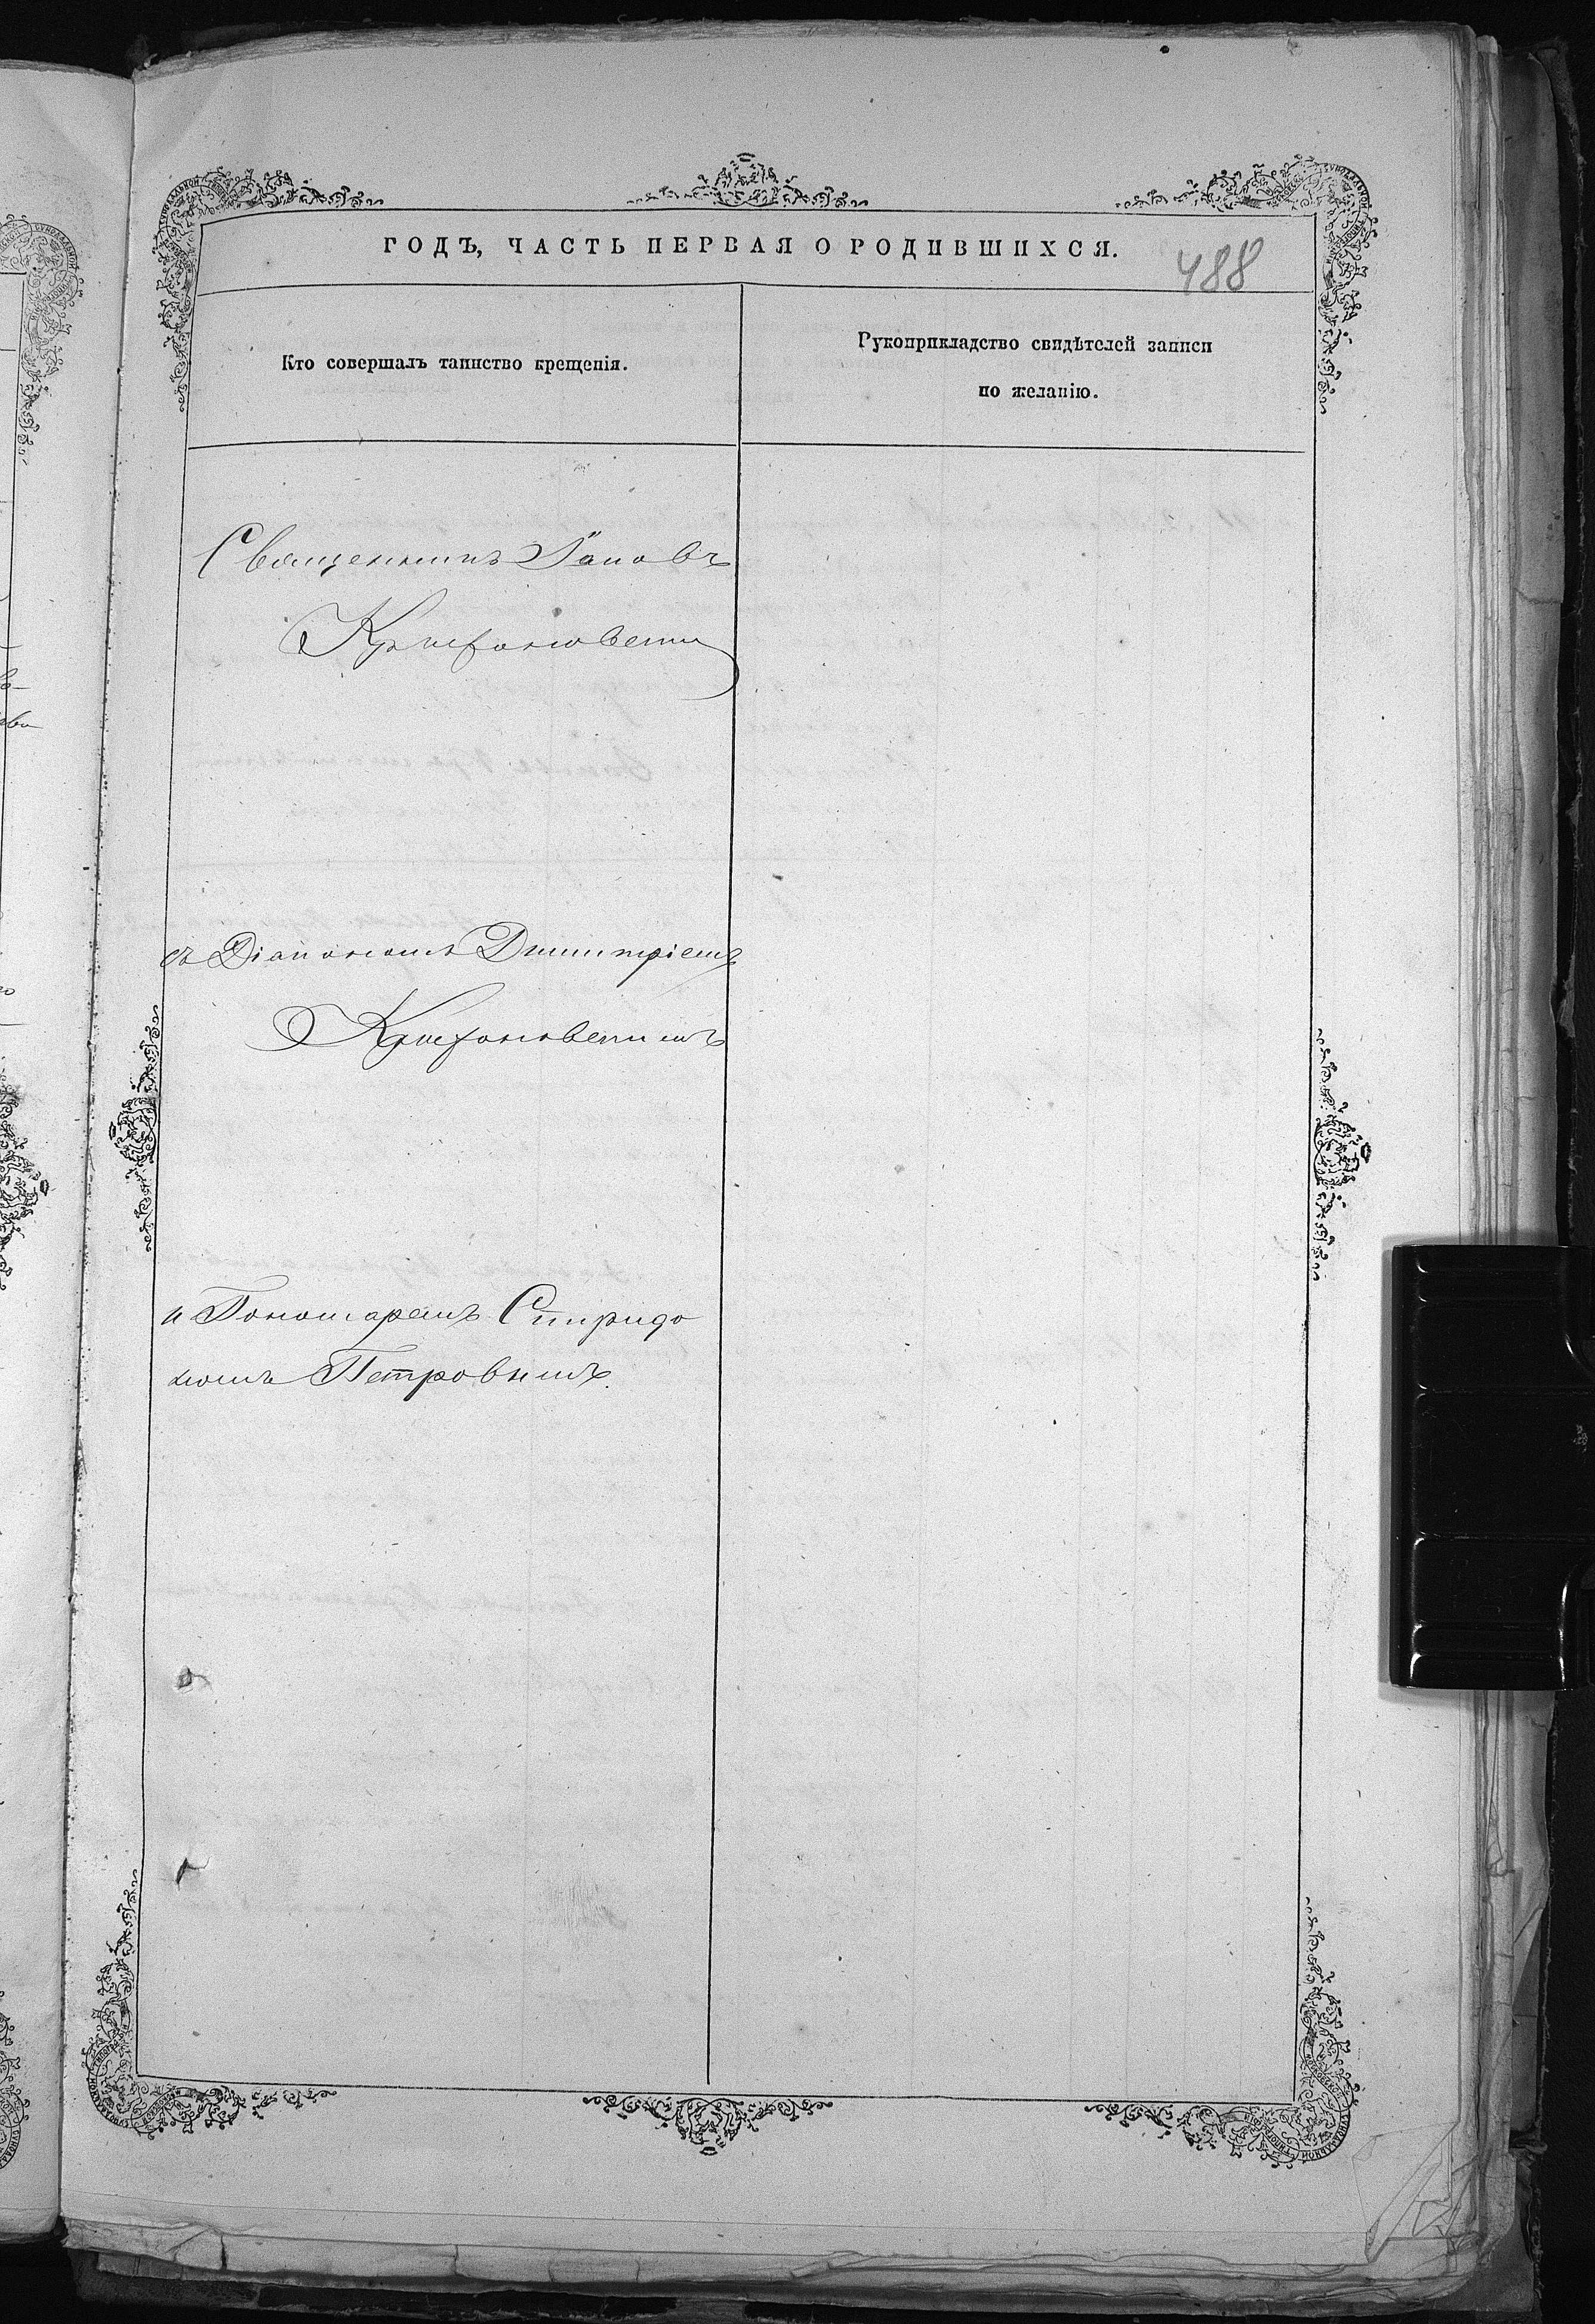 ГОДЪ, ЧАСТЬ ПЕРВАЯ О РОДИВШИХСЯ.
488
Кто совершалъ таинство крещенія.
Рукоприкладство свидѣтелей записи
по желанію.
Священникъ Іаковъ
съ Діакономъ Димитріемъ
и Пономаремъ Спиридо
номъ Петровымъ.